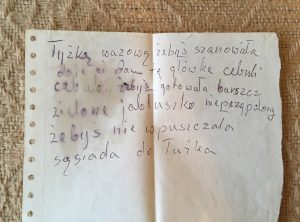 Łyżkę wazową żebyś szanowała
daję ci dam tę główkę cebuli
cebuli żebyś gotowała barszcz
zielone jabłuszko nieprzepołony
żebyś nie wpuszczała
sąsiada do łużka